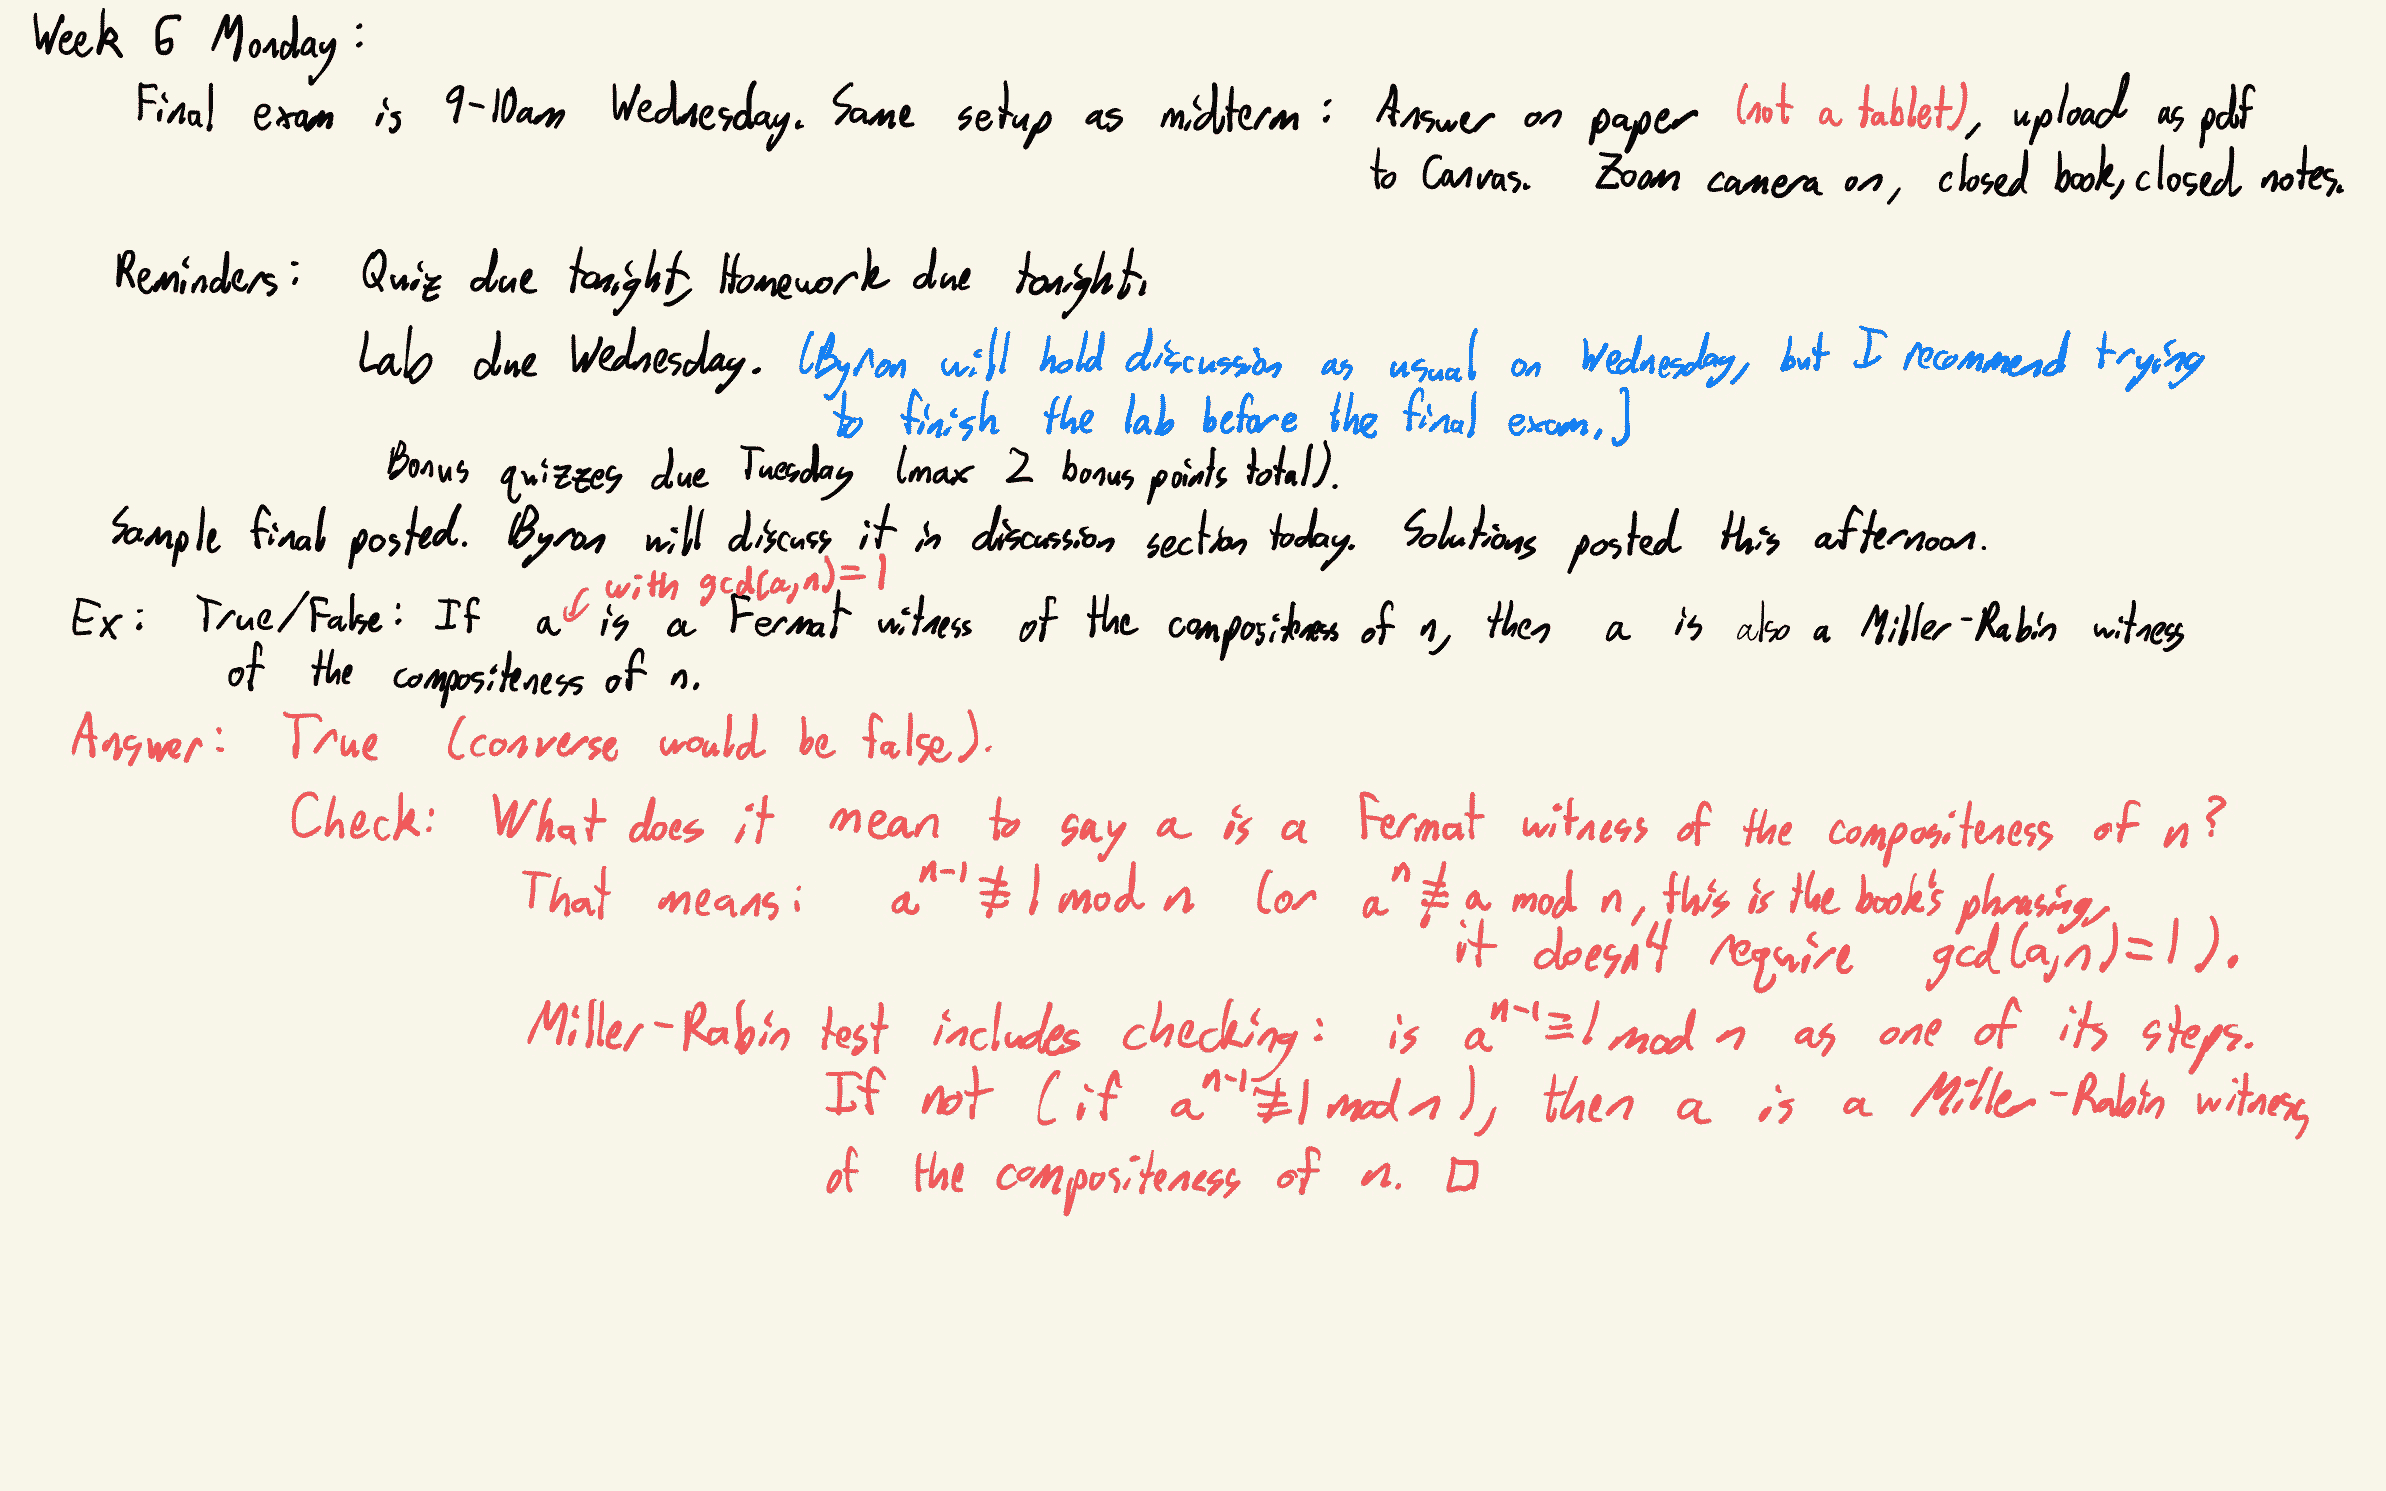 Week 6 Monday:
Final exam is 9-10am Wednesday. Same setup as midterm: Answer on paper (not a tablet), upload as pdf
to Canvas. Zoom camera on, closed book, closed notes.
Reminders: Quiz due tonight, Homework due tonight.
Lab due Wednesday. (Byron will hold discussion as usual on Wednesday, but I recommend trying
to finish the lab before the final exam.)
Bonus quizzes due Tuesday (max 2 bonus points total).
Sample final posted. (Byron will discuss it in discussion section today. Solutions posted this afternoon.
with gcd(a,n)=1
Ex: True/False: If a is a Fermat witness of the compositeness of n, then a is also a Miller-Rabin witness
of the compositeness of n.
Answer: True (converse would be false).
Check: What does it mean to say a is a Fermat witness of the compositeness of n?
That means: a^{n-1} ≢ 1 mod n (or a^n ≢ a mod n, this is the book's phrasing,
it doesn't require gcd(a,n)=1).
Miller-Rabin test includes checking: is a^{n-1} ≡ 1 mod n as one of its steps.
If not (if a^{n-1} ≢ 1 mod n), then a is a Miller-Rabin witness
of the compositeness of n. □